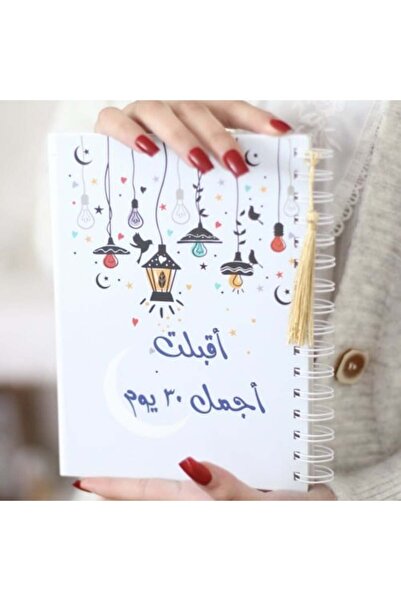 أقبلت
أجمل ٣٠ يوم